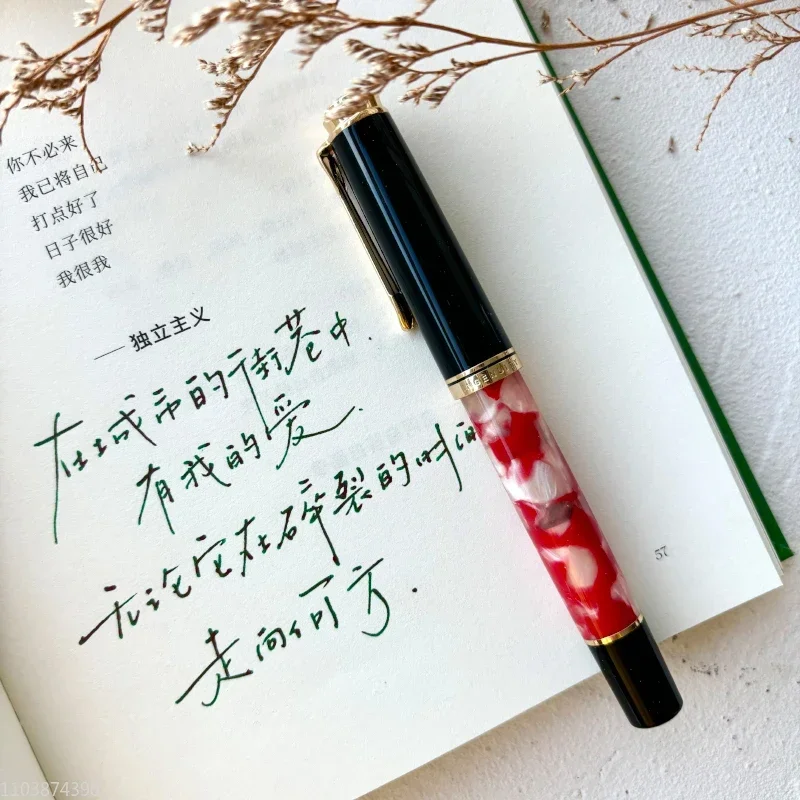 你不必来
我已将自己
打点好了
日子很好
我很我
— 独立主义
在城市的街巷中.
有我的爱.
无论它在碎裂的时间
走向何方.
57